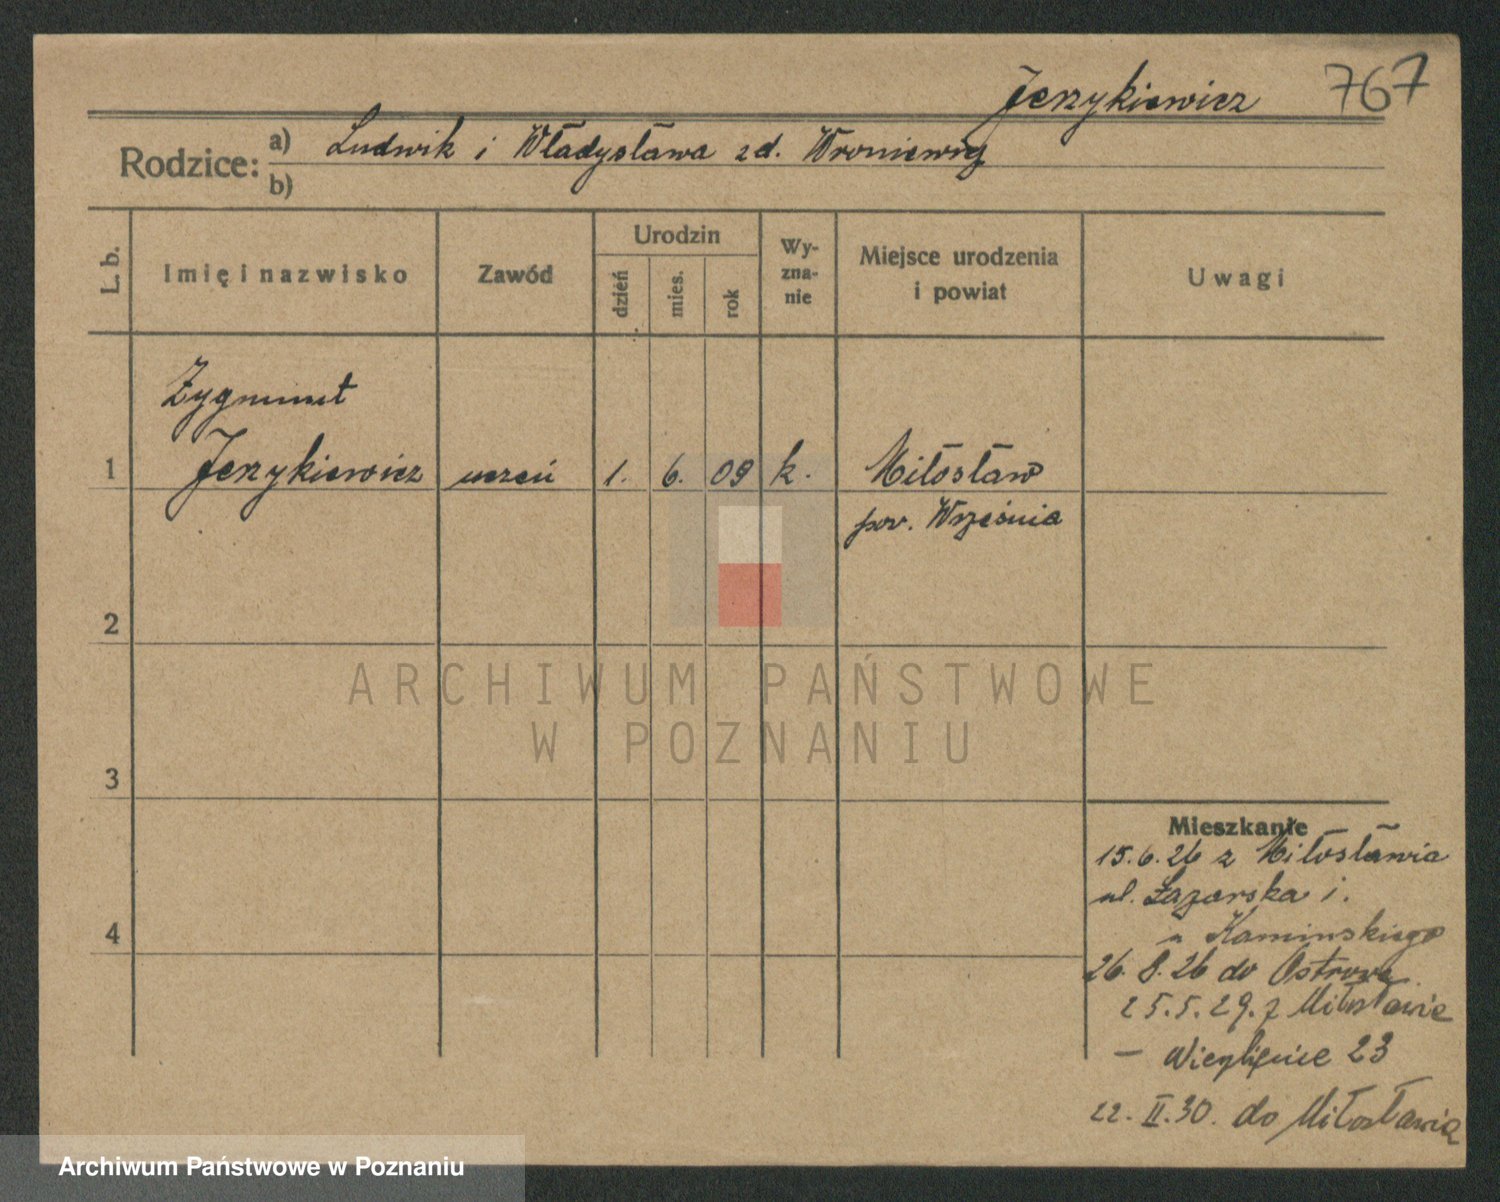 Jerzykiewicz 767
Rodzice: a) Ludwik i Władysława zd.
b)
L. b.
Imię i nazwisko
Zawód
Urodzin
dzień
mies.
rok
Wy-
zna-
nie
Miejsce urodzenia
i powiat
Uwagi
Zygmunt
1 Jerzykiewicz uczeń 1. 6. 09 k. Miłosław
pow. Września
2
3
4
Mieszkanie
15.6.26 z Miłosławia
ul. Łazarska 1.
u Kaminskiego
26.8.26 do Ostrowa
25.5.29. z Miłosławia
— 23
22.II.30. do Miłosławia
ARCHIWUM PAŃSTWOWE
W POZNANIU
Archiwum Państwowe w Poznaniu